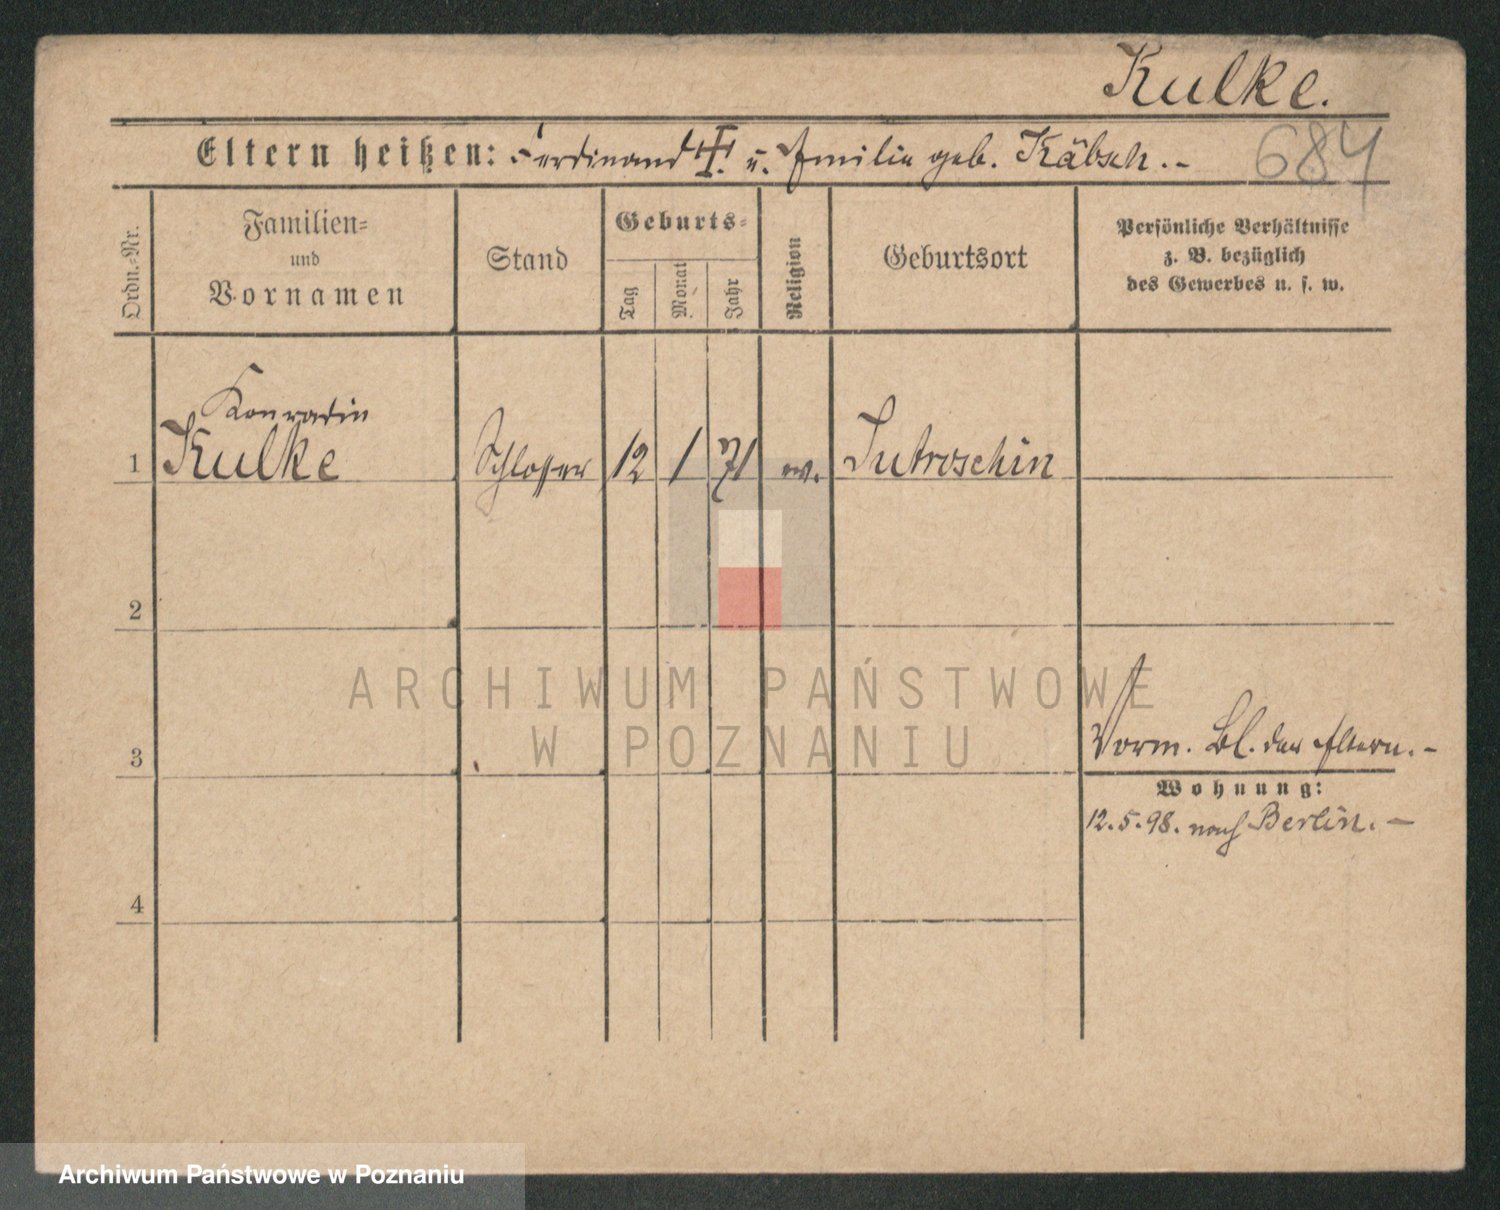 Kulke.
684
Eltern heißen: Ferdinand †. u. Emilie geb. Käbsch.-
Ordn.-Nr.
Familien-
und
Vornamen
Stand
Geburts-
Tag
Monat
Jahr
Religion
Geburtsort
Persönliche Verhältnisse
z. B. bezüglich
des Gewerbes u. s. w.
Konradin
1 Kulke Schlosser 12 1 71 ev. Jutroschin
2
3
Vorm. Bl. der Eltern.-
Wohnung:
12.5.98. nach Berlin.-
4
ARCHIWUM PAŃSTWOWE
W POZNANIU
Archiwum Państwowe w Poznaniu